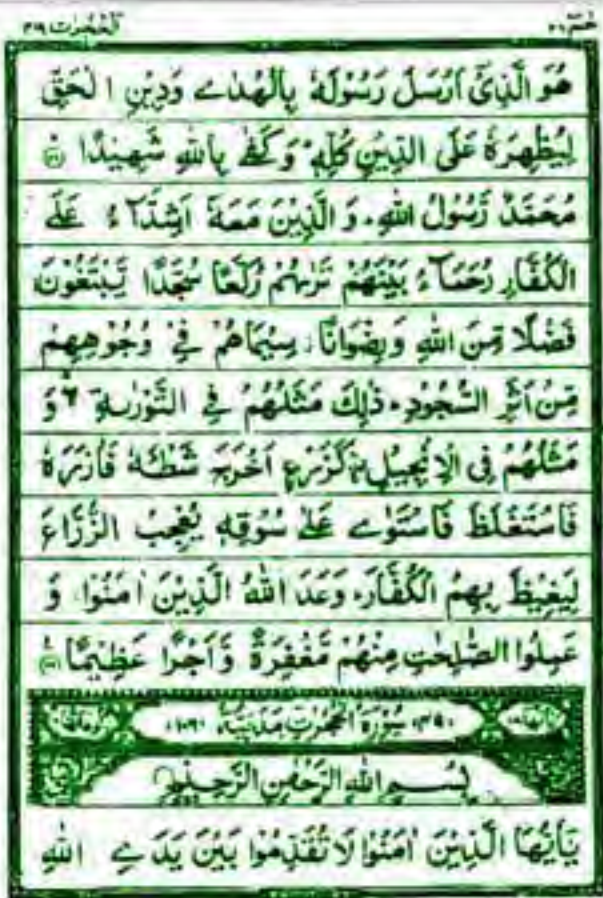 حٰمٓ ٢٦
الحجرات ٤٩
هُوَ الَّذِيْٓ اَرْسَلَ رَسُوْلَهٗ بِالْهُدٰے وَدِيْنِ الْحَقِّ
لِيُظْهِرَهٗ عَلَى الدِّيْنِ كُلِّهٖ ؕ وَكَفٰے بِاللّٰهِ شَهِيْدًا ﴿٢٨﴾
مُحَمَّدٌ رَّسُوْلُ اللّٰهِ ؕ وَ الَّذِيْنَ مَعَهٗٓ اَشِدَّآءُ عَلَے
الْكُفَّارِ رُحَمَآءُ بَيْنَهُمْ تَرٰىهُمْ رُكَّعًا سُجَّدًا يَّبْتَغُوْنَ
فَضْلًا مِّنَ اللّٰهِ وَرِضْوَانًا ؗ سِيْمَاهُمْ فِيْ وُجُوْهِهِمْ
مِّنْ اَثَرِ السُّجُوْدِ ؕ ذٰلِكَ مَثَلُهُمْ فِي التَّوْرٰىةِ ۛۖ وَ
مَثَلُهُمْ فِي الْاِنْجِيْلِ ۛ۫ كَزَرْعٍ اَخْرَجَ شَطْـَٔهٗ فَاٰزَرَهٗ
فَاسْتَغْلَظَ فَاسْتَوٰے عَلٰے سُوْقِهٖ يُعْجِبُ الزُّرَّاعَ
لِيَغِيْظَ بِهِمُ الْكُفَّارَ ؕ وَعَدَ اللّٰهُ الَّذِيْنَ اٰمَنُوْا وَ
عَمِلُوا الصّٰلِحٰتِ مِنْهُمْ مَّغْفِرَةً وَّاَجْرًا عَظِيْمًا ﴿٢٩﴾
اٰياتها ١٨ ﴿٤٩﴾ سُوْرَةُ الْحُجُرٰتِ مَدَنِيَّةٌ ﴿١٠٦﴾ ركوعاتها ٢
بِسْمِ اللّٰهِ الرَّحْمٰنِ الرَّحِيْمِ
يٰٓاَيُّهَا الَّذِيْنَ اٰمَنُوْا لَا تُقَدِّمُوْا بَيْنَ يَدَےِ اللّٰهِ